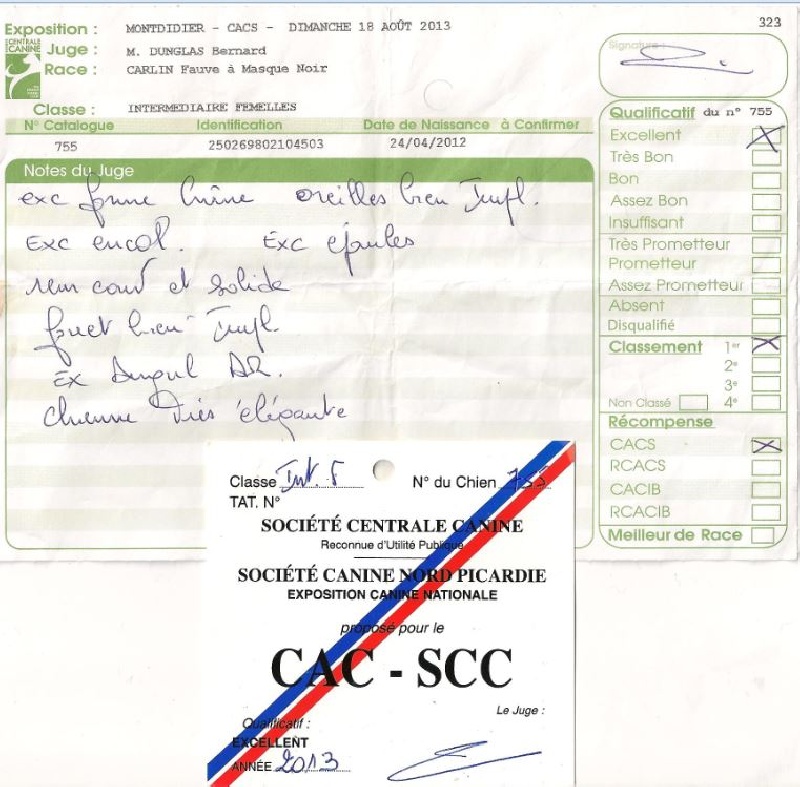 323
Exposition : MONTDIDIER - CACS - DIMANCHE 18 AOÛT 2013
CENTRALE CANINE
Juge : M. DUNGLAS Bernard
Race : CARLIN Fauve à Masque Noir
Classe : INTERMEDIAIRE FEMELLES
N° Catalogue Identification Date de Naissance à Confirmer
755 250269802104503 24/04/2012
Notes du Juge
exc forme crâne oreilles bien Impl.
Exc encol. Exc épaules
rein court et solide
fouet bien Impl.
Ex Angul AR.
chienne Très élégante
Signature :
Qualificatif du n° 755
Excellent X
Très Bon
Bon
Assez Bon
Insuffisant
Très Prometteur
Prometteur
Assez Prometteur
Absent
Disqualifié
Classement 1er X
2e
3e
Non Classé 4e
Récompense
CACS X
RCACS
CACIB
RCACIB
Meilleur de Race
Classe Int. F N° du Chien 755
TAT. N°
SOCIÉTÉ CENTRALE CANINE
Reconnue d'Utilité Publique
SOCIÉTÉ CANINE NORD PICARDIE
EXPOSITION CANINE NATIONALE
proposé pour le
CAC - SCC
Le Juge :
Qualificatif :
EXCELLENT
ANNÉE 2013